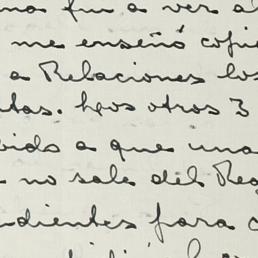 fui a ver a
me enseñó copi
a Relaciones los
tas. hijos otros 3
bido a que una
no sale del Reg
dientes para c